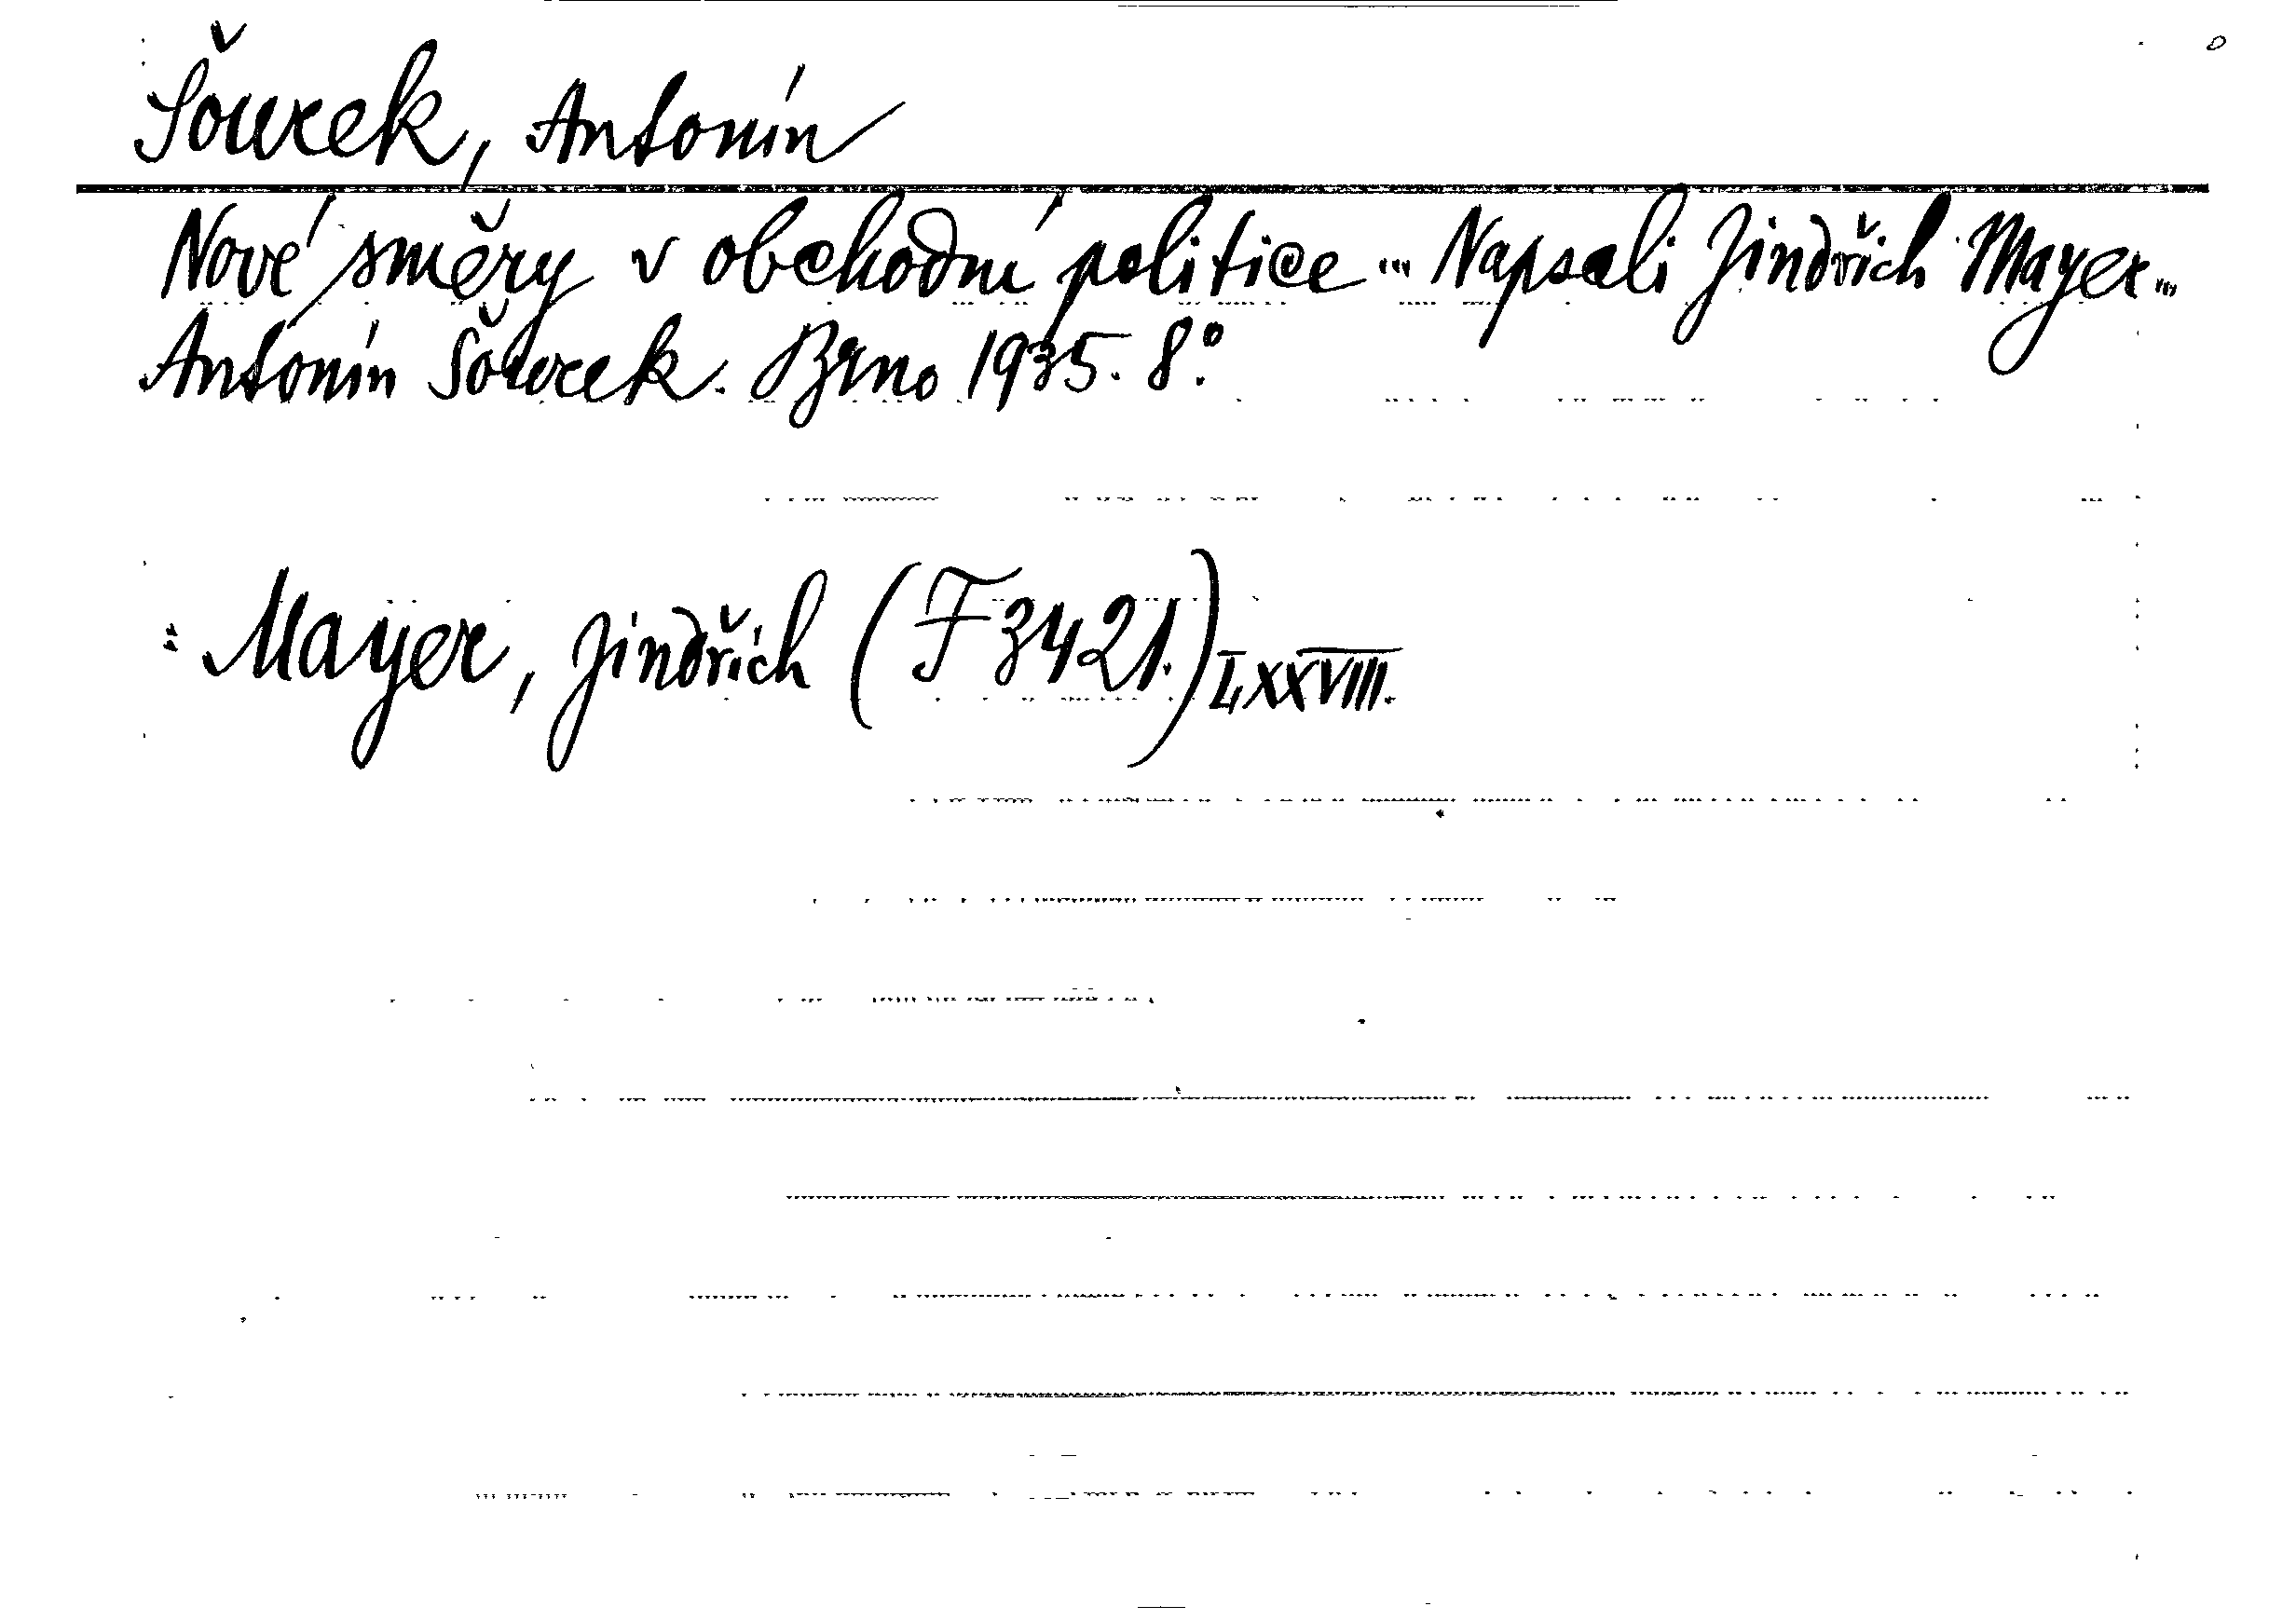 Šourek, Antonín
Nové směry v obchodní politice ... Napsali Jindřich Mayer ...
Antonín Šourek. Brno 1935. 8°.
: Mayer, Jindřich (F 3421.) LXXVIII.